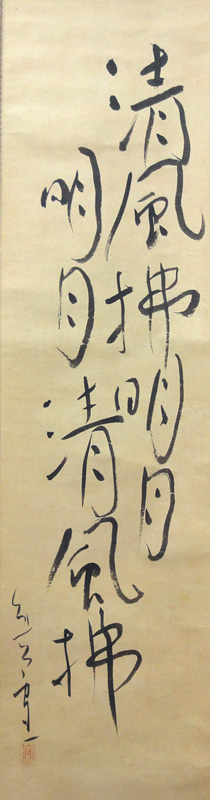 清風拂明月
明月清風拂